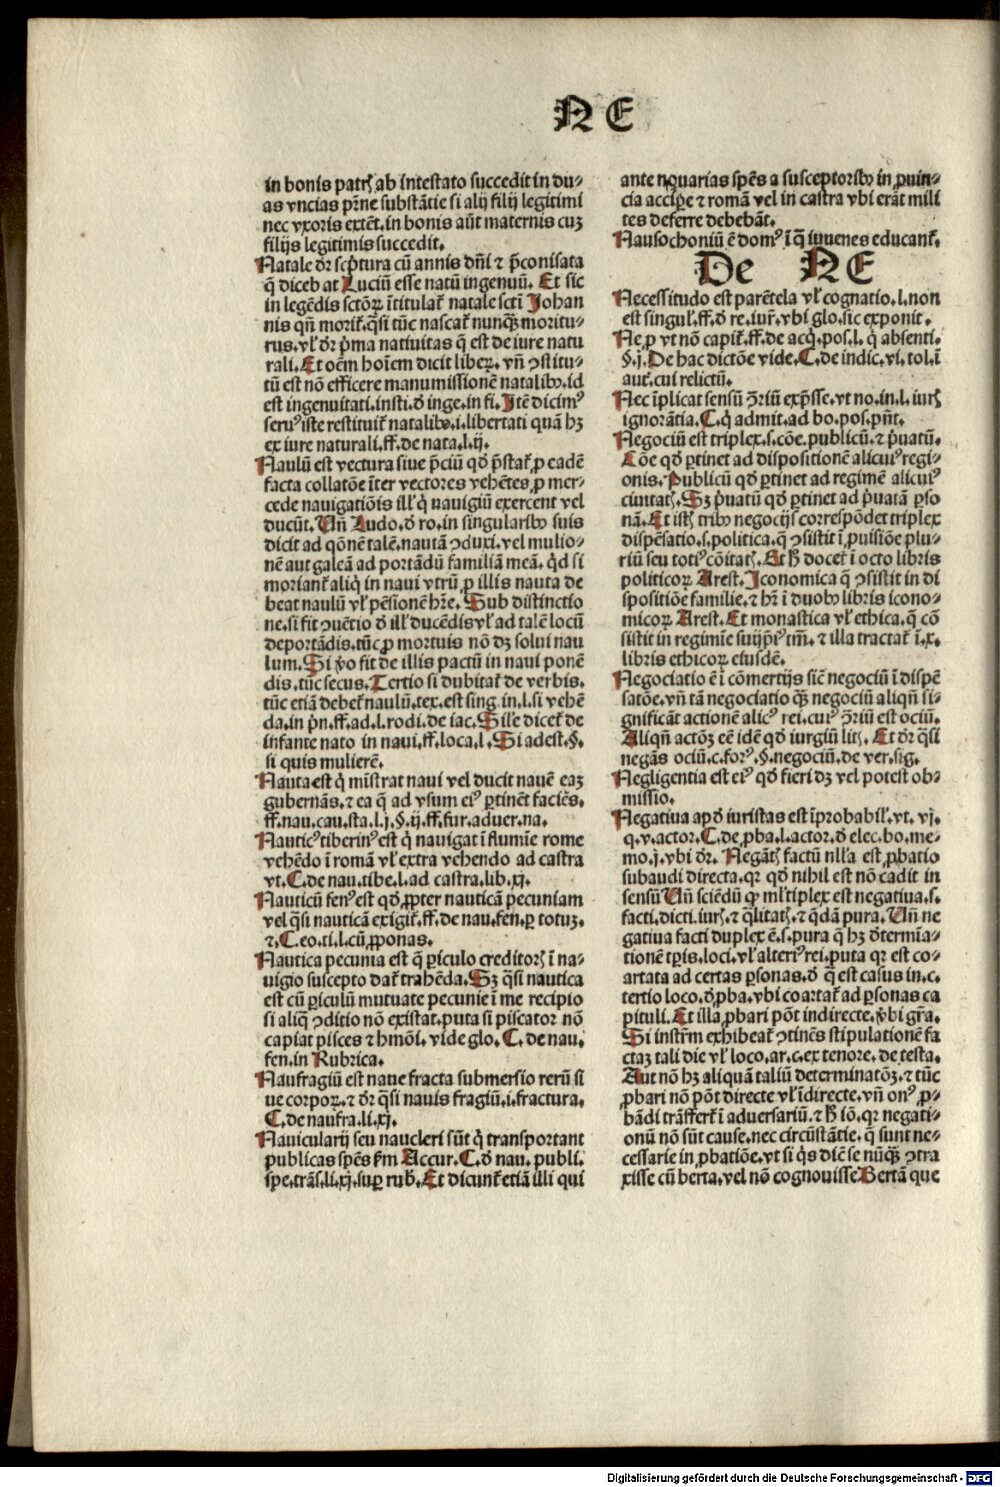 N E
in bonis patꝶ ab intestato succedit in du⸗
as vncias ꝑrne substātie si alij filij legitimi
nec vxoris extēt. in bonis aūt maternis cuꝫ
filijs legitimis succedit.
Natale dr̄ scp̄tura cū annis dn̄i ⁊ p̄conisata
q̄ diceb at Luciū esse natū ingenuū. Et sic
in legēdis sctōꝝ ītitulat᷑ natale sctī Johan
nis qn̄ morit᷑. q̄si tūc nascat᷑ nunqꝫ moritu⸗
rus. vl̕ dr̄ p̄ma natiuitas q̄ est de iure natu
rali. Et oēm hoīem dicit liberꝝ. vn̄ ꝯstitu⸗
tū est nō efficere manumissionē natalibꝰ. id
est ingenuitati. insti. ð inge. in fi. Itē dicimꝰ
seruꝰ iste restituit᷑ natalibꝰ. i. libertati quā hꝫ
ex iure naturali. ff. de nata. l. ij.
Naulū est vectura siue p̄ciū qð p̄stat᷑ ꝓ eadē
facta collatōe īter vectores vehētes ꝓ mer⸗
cede nauigatiōis ill̕ q̇ nauigiū exercent vel
ducūt. Vn̄ Ludo. ð ro. in singularibꝰ suis
dicit ad qōnē talē. nautā ꝯduxi. vel mulio⸗
nē aut galeā ad portādū familiā meā. q̇d si
moriant᷑ aliq̇ in naui vtrū ꝓ illis nauta de
beat naulū vl̕ pēsionē hr̄e. Sub distinctio
ne. si fit ꝯuētio ð ill̕ ducēdis vl̕ ad talē locū
deportādis. tūc ꝓ mortuis nō dꝫ solui nau
lum. Si v̊o fit de illis pactū in naui ponē
dis. tūc secus. Tertio si dubitat᷑ de verbis.
tūc etiā debet᷑ naulū. tex. est sing. in. l. si vehē
da. in pn̄. ff. ad. l. rodi. de iac. Sil̕e dicet᷑ de
infante nato in naui. ff. loca. l. Si adest. §.
si quis mulierē.
Nauta est q̇ mīstrat naui vel ducit nauē eaꝫ
gubernās. ⁊ ea q̄ ad vsum eiꝰ ꝑtinēt faciēs.
ff. nau. cau. sta. l. j. §. ij. ff. fur. aduer. na.
Nauticꝰ tiberinꝰ est q̇ nauigat ī flumīe rome
vehēdo ī romā vl̕ extra vehendo ad castra
vt. C. de nau. tibe. l. ad castra. lib. xj.
Nauticū fenꝰ est qð ꝓpter nauticā pecuniam
vel q̄si nauticā exigit᷑. ff. de nau. fen. ꝑ totuꝫ.
⁊. C. eo. ti. l. cū ꝓponas.
Nautica pecunia est q̄ ꝑiculo creditorꝶ ī na⸗
uigio suscepto dat᷑ trahēda. Sꝫ q̄si nautica
est cū ꝑiculū mutuate pecunie ī me recipio
si aliq̄ ꝯditio nō existat. puta si piscator nō
capiat pisces ⁊ hmōi. vide glo. C. de nau.
fen. in Rubrica.
Naufragiū est naue fracta submersio rerū si
ue corpoꝝ. ⁊ dr̄ q̄si nauis fragiū. i. fractura.
C. de naufra. li. xj.
Nauicularij seu naucleri sūt q̇ transportant
publicas spēs fm Accur. C. ð nau. publi.
spe. trās. li. xj. suꝑ rub̕. Et dicunt᷑ etiā illi qui
ante nouarias spēs a susceptoribꝰ in ꝓuin⸗
cia accipe ⁊ romā vel in castra vbi erāt mili
tes deferre debebāt.
Nausochoniū ē domꝰ ī q̄ iuuenes educant᷑.
De N E
Necessitudo est parētela vl̕ cognatio. l. non
est singul̕. ff. ð re. iur̄. vbi glo. sic exponit.
Ne ꝓ vt nō capit᷑. ff. de acq̇. pos. l. q̇ absenti.
§. j. De hac dictōe vide. C. de indic. vi. tol. ī
aut̕. cui relictū.
Nec īplicat sensū ꝯriū exp̄sse. vt no. in. l. iurꝶ
ignorātia. C. q̇ admit. ad bo. pos. pn̄t.
Negociū est triplex. s. cōe. publicū. ⁊ ṗuatū.
Cōe qð ꝑtinet ad dispositionē alicuiꝰ regi⸗
onis. Publicū qð ꝑtinet ad regimē alicuiꝰ
ciuitatꝶ. Sꝫ ṗuatū qð ꝑtinet ad ṗuatā ꝑso
nā. Et istꝶ tribꝰ negocijs correspōdet triplex
dispēsatio. s. politica. q̄ ꝯsistit ī ꝓuisiōe plu⸗
riū seu totiꝰ cōitatꝶ. Et ħ docet᷑ ī octo libris
politicoꝝ Arest. Iconomica q̄ ꝯsistit in di
spositiōe familie. ⁊ hr̄ ī duobꝰ libris icono⸗
micoꝝ Arest. Et monastica vl̕ ethica. q̄ cō
sistit in regimīe suijp̄iꝰ tm̄. ⁊ illa tractat᷑ ī. x.
libris ethicoꝝ eiusdē.
Negociatio ē ī cōmertijs sicꝰ negociū ī dispē
satōe. vn̄ tā negociatio qꝫ negociū aliqn̄ si⸗
gnificāt actionē alicꝰ rei. cuiꝰ ꝯriū est ociū.
Aliqn̄ actōꝫ eē idē qð iurgiū litꝶ. Et dr̄ q̄si
negās ociū. c. forꝰ. §. negociū. de ver. sig.
Negligentia est eiꝰ qð fieri dꝫ vel potest ob⸗
missio.
Negatiua apð iuristas est īprobabil̕. vt. vj.
q. v. actor. C. de ꝓba. l. actor. ð elec. bo. me⸗
mo. j. vbi dr̄. Negātꝶ factū nll̕a est ꝓbatio
subaudi directa. qꝛ qð nihil est nō cadit in
sensū Vn̄ sciēdū ꝙ ml̕tiplex est negatiua. s.
facti. dicti. iurꝶ. ⁊ q̄litatꝶ. ⁊ q̄dā pura. Vn̄ ne
gatiua facti duplex ē. s. pura q̄ hꝫ ðtermīa⸗
tionē tꝑis. loci. vl̕ alteriꝰ rei. puta qꝛ est co⸗
artata ad certas ꝑsonas. ð q̄ est casus in. c.
tertio loco. ð ꝓba. vbi coartat᷑ ad ꝑsonas ca
pituli. Et illa ꝓbari pōt indirecte. v̊bi gr̄a.
Si instr̄m exhibeat᷑ ꝯtinēs stipulationē fa
ctaꝫ tali die vl̕ loco. ar. c. ex tenore. de testa.
Aut nō hꝫ aliquā taliū determinatōꝫ. ⁊ tūc
ꝓbari nō pōt directe vl̕ īdirecte. vn̄ onꝰ ꝓ⸗
bādi trāffert᷑ ī aduersariū. ⁊ ħ iō. qꝛ negati⸗
onū nō sūt cause. nec circūstātie. q̄ sunt ne⸗
cessarie in ꝓbatiōe. vt si q̇s diē se nūqꝫ ꝯtra
xisse cū berta. vel nō cognouisse Bertā que
Digitalisierung gefördert durch die Deutsche Forschungsgemeinschaft - DFG